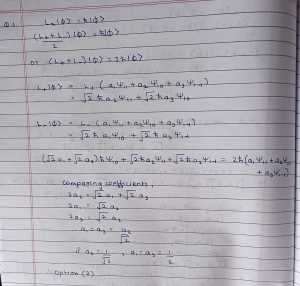 Q1. Lₓ|φ> = ħ|φ>
(L₊ + L₋)|φ> = ħ|φ>
2
or (L₊ + L₋)|φ> = 2ħ|φ>
L₊|φ> = L₊ (a₁Ψ₁₁ + a₂Ψ₁₀ + a₃Ψ₁₋₁)
= √2 ħ a₂Ψ₁₁ + √2 ħ a₃Ψ₁₀
L₋|φ> = L₋ (a₁Ψ₁₁ + a₂Ψ₁₀ + a₃Ψ₁₋₁)
= √2 ħ a₁Ψ₁₀ + √2 ħ a₂Ψ₁₋₁
(√2 a₁ + √2 a₃)ħΨ₁₀ + √2 ħ a₂Ψ₁₁ + √2 ħ a₂Ψ₁₋₁ = 2ħ(a₁Ψ₁₁ + a₂Ψ₁₀
+ a₃Ψ₁₋₁)
Comparing coefficients,
2a₂ = √2 a₁ + √2 a₃
2a₁ = √2 a₂
2a₃ = √2 a₂
a₁ = a₃ = a₂
√2
if a₂ = 1/√2, a₁ = a₃ = 1/2
Option (2)